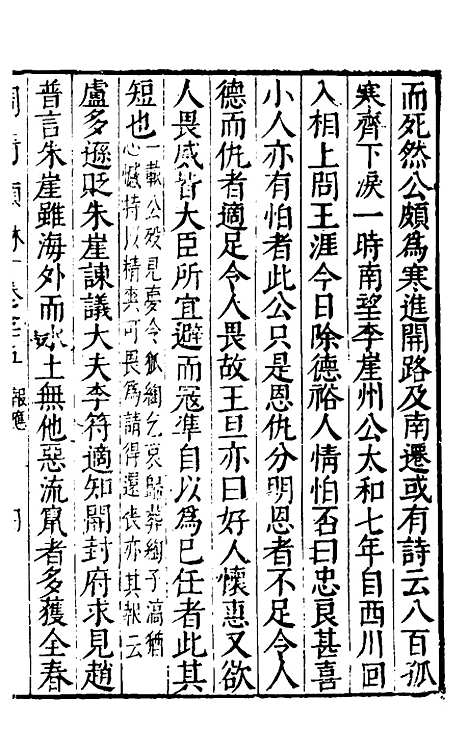 而死然公頗爲寒進開路及南遷或有詩云八百孤
寒齊下淚一時南望李崖州公太和七年自西川回
入相上問王涯今日除德裕人情怕否曰忠良甚喜
小人亦有怕者此公只是恩仇分明恩者不足令人
德而仇者適足令人畏故王旦亦曰好人懷惠又欲
人畏威皆大臣所宜避而冦準自以爲已任者此其
短也
一載公殁見夢令狐綯乞哀歸葬綯子滈猶
心憾特以精爽可畏爲請得還喪亦其報云
盧多遜貶朱崖諫議大夫李符適知開封府求見趙
普言朱崖雖海外而水土無他惡流竄者多獲全春
卷之五 報應